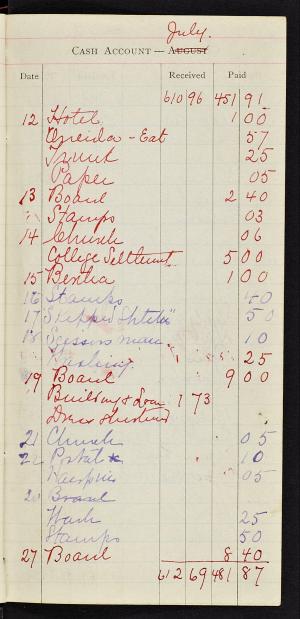 July.
CASH ACCOUNT — AUGUST
Date Received Paid
610 96 451 91
12 Hotel 1 00
Oneida - Eat 57
25
Paper 05
13 Board 2 40
" Stamps 03
14 Church 06
College Settlement 5 00
15 Bertha 1 00
16 Stamps 40
17 50
18 Scissors man 10
Washing 25
19 Board 9 00
Building & Loan 1 73
Dress
21 Church 05
22 Postal 10
Hairpins 05
20 Board
Wash 25
Stamps 50
27 Board 8 40
612 69 481 87